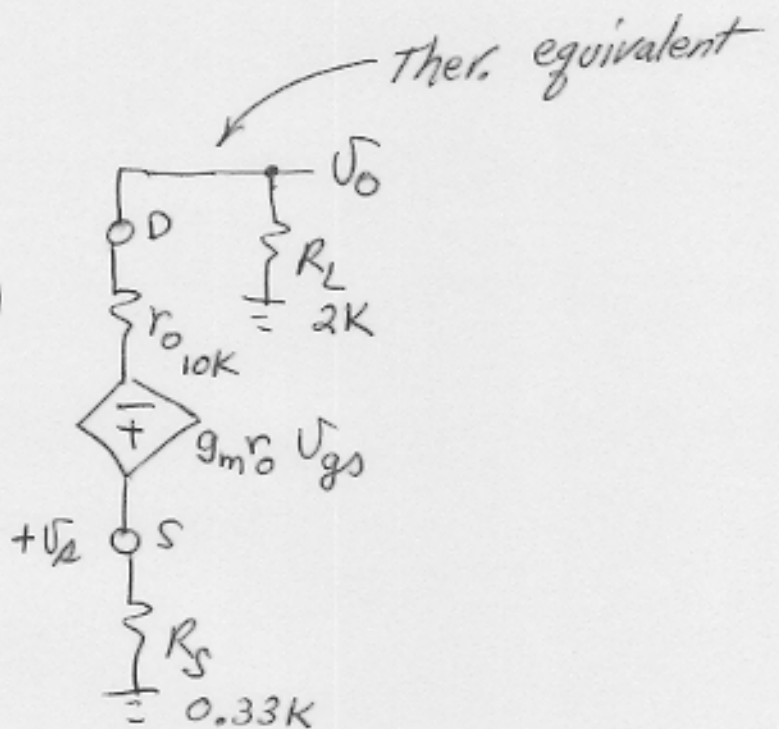 Ther. equivalent
υo
D
RL
2K
ro 10K
− +
gmro υgs
+υs S
RS
0.33K